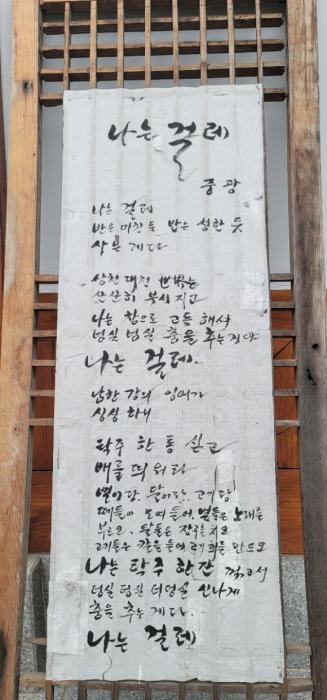 나는 걸레
중광
나는 걸레
반은 미친 듯 반은 성한 듯
사는 게다
삼천대천 世界는
산산히 부서지고
나는 참으로 고독해서
넘실 넘실 춤을 추는거다
나는 걸레
남한강의 잉어가
싱싱 하니
탁주 한통 싣고
배를 띄워라
별이랑, 달이랑, 고래랑
떼들이 모여들어, 별들은 노래를
부르오, 달들은 장구를 치오
고기들은 칼을 들어 고기회를 만드오
나는 탁주 한잔 꺾고서
덩실 덩실 더덩실 신나게
춤을 추는 게다
나는 걸레